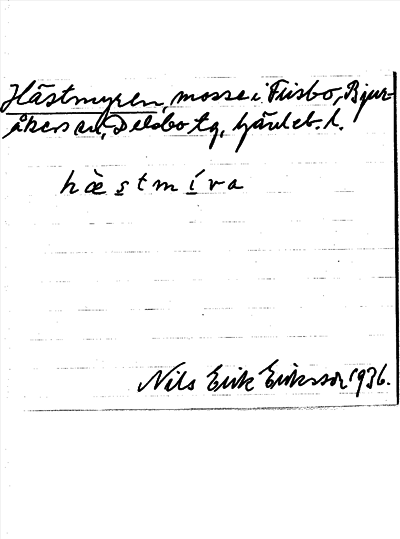 Hästmyren, mosse i Frisbo, Bjur-
åkers sn, Delsbo tg, Gävleb. l.
hæstmíva
Nils Erik Eriksson 1936.